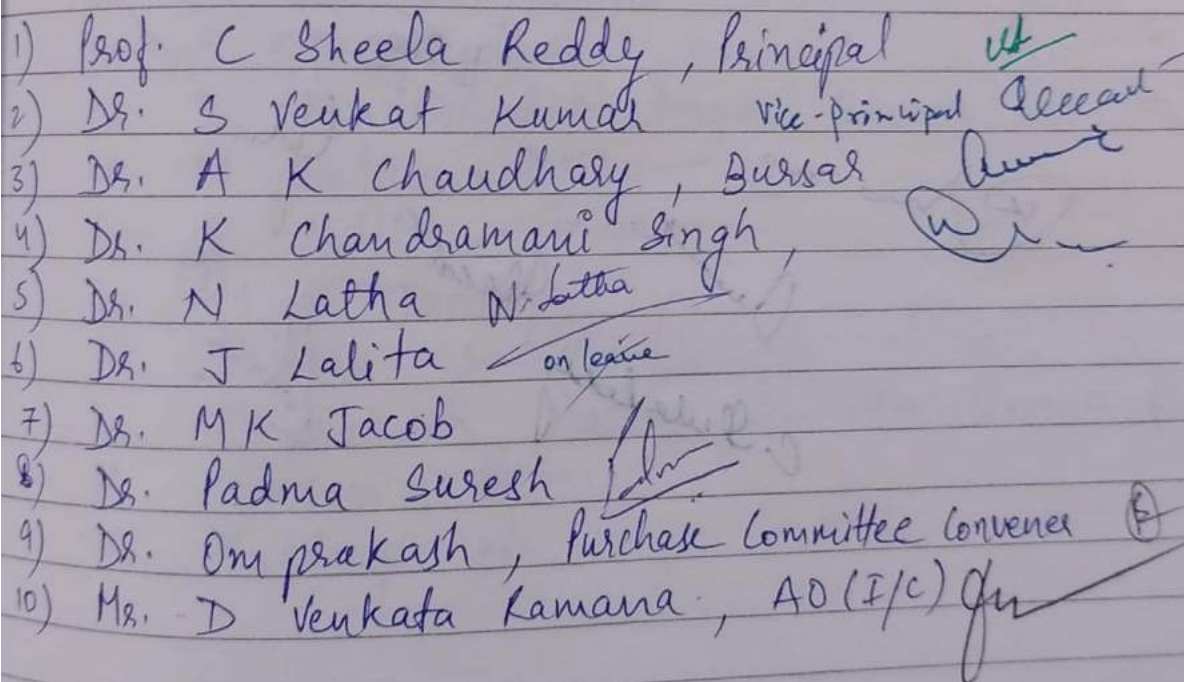 1) Prof. C Sheela Reddy, Principal
2) Dr. S Venkat Kumar Vice-Principal
3) Dr. A K Chaudhary, Bursar
4) Dr. K Chandramani Singh,
5) Dr. N Latha N. Latha
6) Dr. J Lalita on leave
7) Dr. M K Jacob
8) Dr. Padma Suresh
9) Dr. Om prakash, Purchase Committee Convener
10) Mr. D Venkata Ramana, AO (I/C)